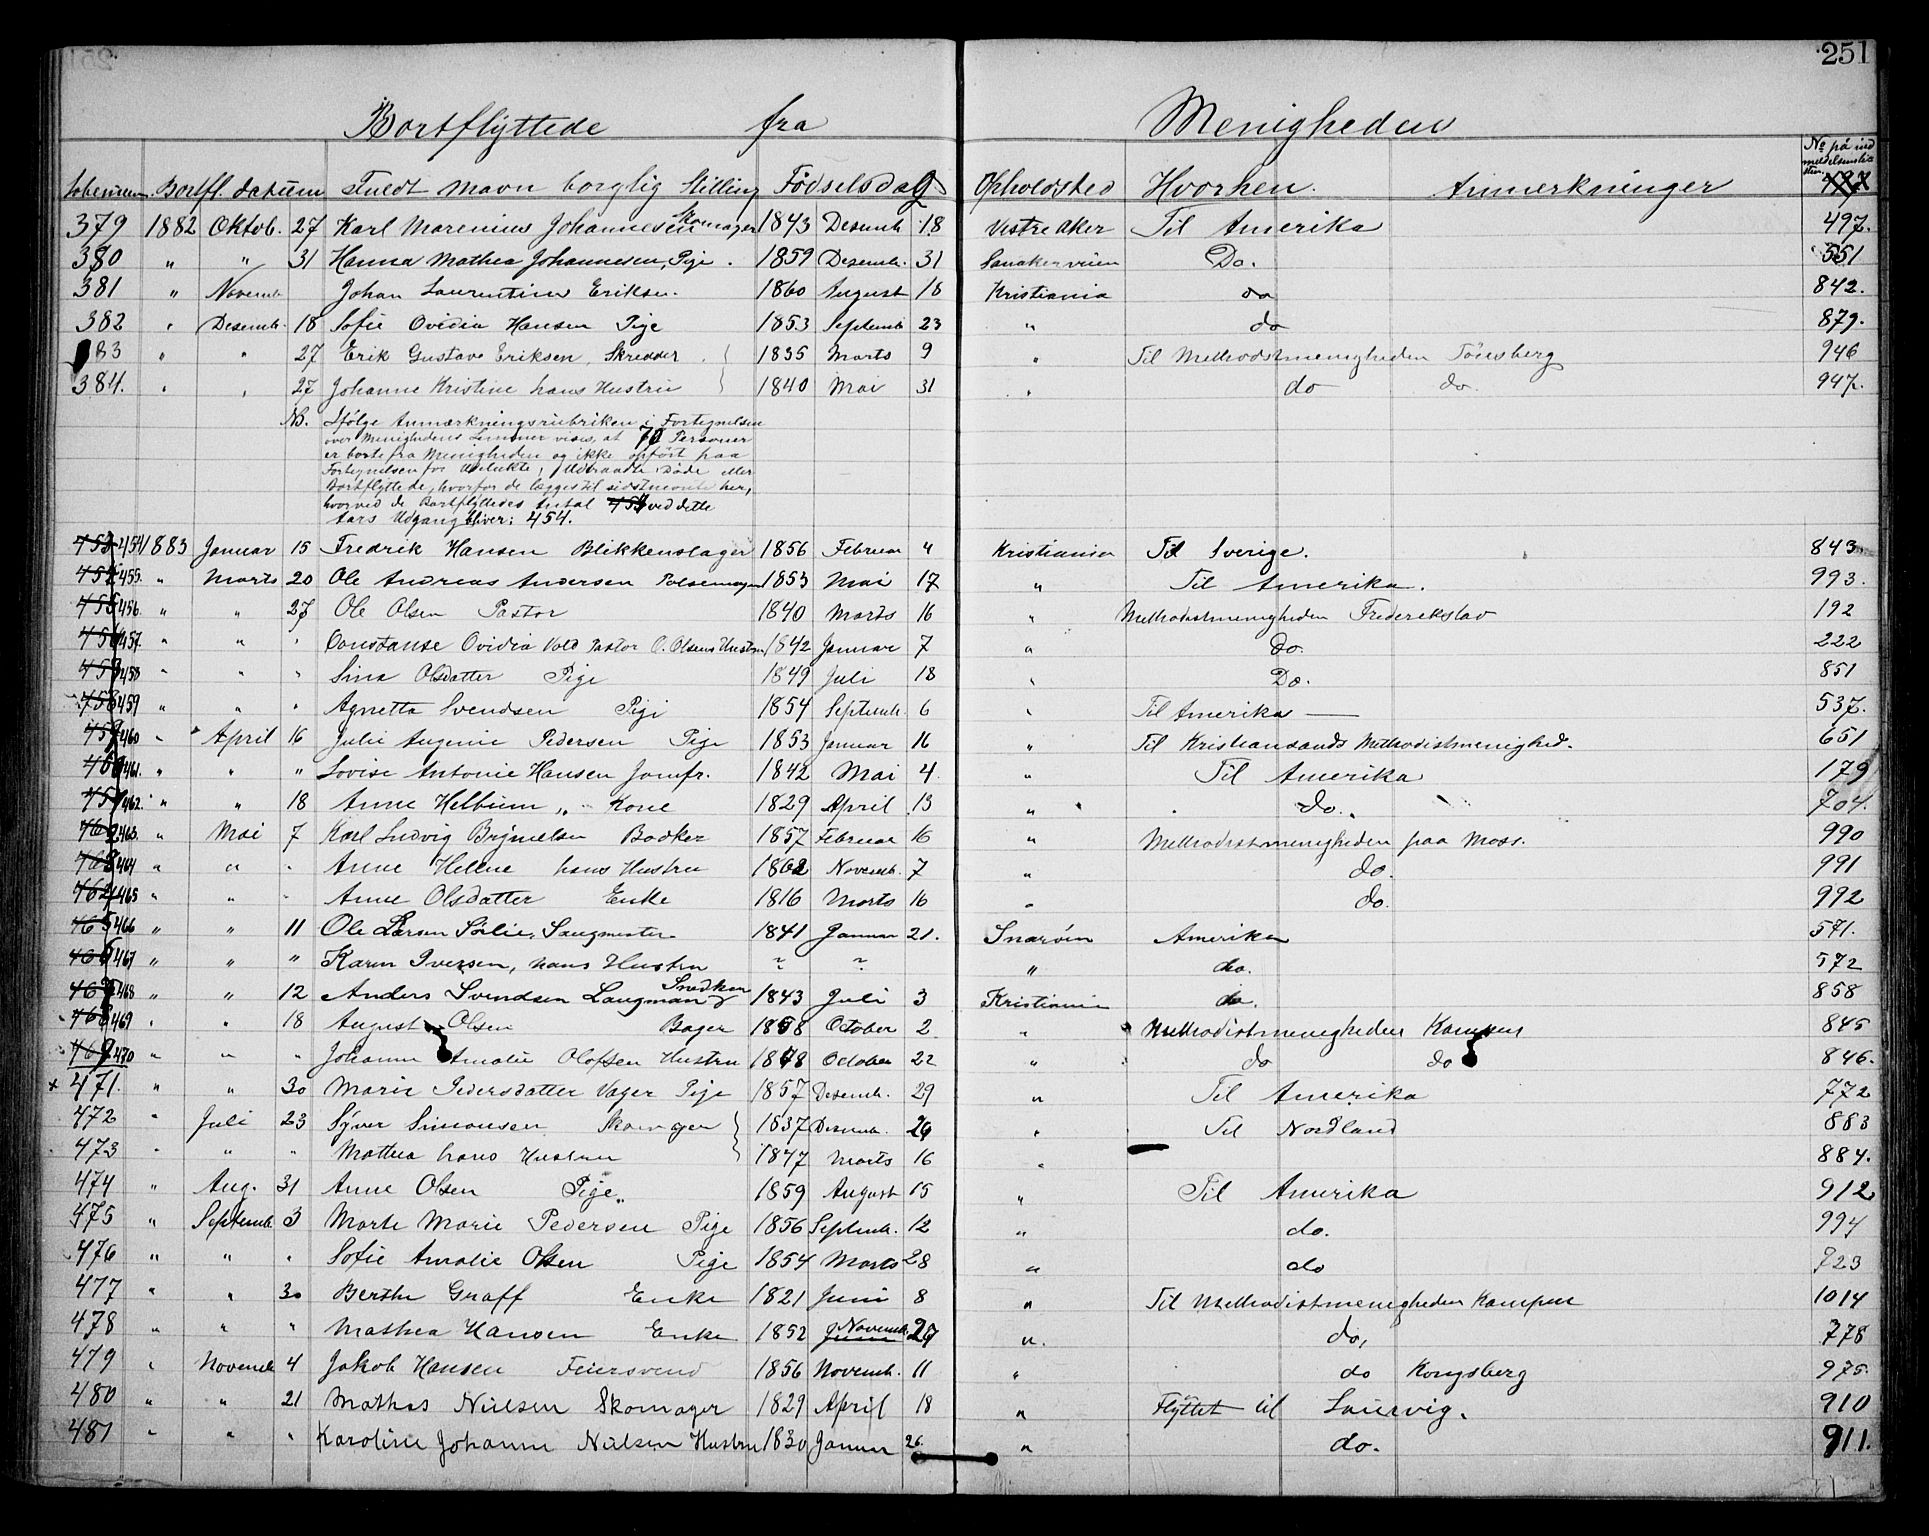 251
Bortflyttede fra Menigheden
Bortfl. datum Fuldt Navn borglig Stilling Födselsdag Opholdsted Hvorhen. Anmerkninger No på ind
497
379 1882 Oktob. 27 Karl Marenius Johannesen Skomager 1843 Desemb. 18 Vestre Aker Til Amerika 497.
380 " " 31 Hanna Mathea Johannesen, Pige. 1859 Desemb. 31 Do. 551
381 " Novemb. Johan Laurentius Eriksen. 1860 August 18 Kristiania do 842.
382 " Desemb. 18 Sofie Ovidia Hansen Pige 1853 Septemb. 23 " do 879.
383 " " 27 Erik Gustave Eriksen, Skredder. 1835 Marts 9 " Til Methodistmenigheden Tönsberg 946
384. " " 27 Johanne Kristine hans Hustru 1840 Mai 31 " do do. 947.
NB. Ifölge Anmærkningsrubriken i Fortegnelsen
over Menighedens Lemmer vises, at 70 Personer
er borte fra Menigheden og ikke opfört paa
Fortegnelsen for Udelukte, Udtraadte Döde eller
Bortflyttede, hvorfor de lægges til sidstnævnte her,
hvorved de Bortflyttedes Antal 453 ved dette
Aars Udgang bliver: 454.
453 454 1883 Januar 15 Fredrik Hansen Blikkenslager 1856 Februar 4 Kristiania Til Sverige. 843.
455. " Marts 20 Ole Andreas Andersen Pölsemager 1853 Mai 17 " Til Amerika. 993.
456. " " 27 Ole Olsen Pastor 1840 Marts 16 " Methodistmenigheden Frederikshald 192
457. " " " Constanse Ovidia Vold Pastor O. Olsens Hustru 1842 Januar 7 " Do. 222
458 " " " Sina Olsdatter Pige 1849 Juli 18 " Do. 851
459 " " " Agnetta Svendsen Pige 1854 Septemb. 6 " Til Amerika — 537.
460 " April 16 Julie Augenie Pedersen Pige 1853 Januar 16 " Til Kristiansands Methodistmenighed. 651
461. " " " Lovise Antonie Hansen Jomfr. 1842 Mai 4. " Til Amerika 179
462. " " 18 Anne Helbium " Kone 1829 April 13 " do. 704.
463. " Mai 7 Karl Ludvig Brynelsen Bödker 1857 Februar 16 " Methodistmenigheden paa Moss. 990
464 " " " Anne Helene hans Hustru 1862 Novemb. 7 " do. 991
465 " " " Anne Olsdatter Enke 1816 Marts 16 " do. 992
466 " " 11 Ole Larsen Sölie, Saugmester. 1841 Januar 21. Snaröen Amerika 571.
467 " " " Karen Iversen, hans Hustru ? ? " do. 572
468 " " 12 Anders Svendsen Laugmand Snedker 1843 Juli 3 Kristiania do. 858
469 " " 18 August Olsen Bager 1858 October 2 " Methodistmenigheden Kampen 845
470 " " " Johanne Amalie Olofsen Hustru 1848 October 22 " do do 846.
x 471. " " 30 Marie Pedersdatter Vager Pige 1857 Desemb. 29 " Til Amerika 772
472 " Juli 23 Syver Simonsen Skomager 1837 Desemb. 29 " Til Nordland 883
473 " " " Mathea hans Hustru 1847 Marts 16 " 884.
474 " Aug. 31 Anne Olsen Pige " 1859 August 15 " Til Amerika 912
475 " Septemb. 3 Marte Marie Pedersen Pige 1856 Septemb. 12 " do. 994
476 " " " Sofie Amalie Olsen Pige 1854 Marts 28 " do 723
477 " " 30 Berthe Graff Enke 1821 Juni 8 " Til Methodistmenigheden Kampen 1014
478 " " " Mathea Hansen Enke 1852 Juni Novemb. 27 " do, 778
479 " Novemb. 4 Jakob Hansen Feiersvend 1856 Novemb. 11 " do Kongsberg 975.
480 " " 21 Mathas Nielsen Skomager 1829 April 18 " Flyttet til Laurvig. 910
481 " " " Karoline Johanne Nielsen Hustru 1830 Januar 26. " do. 911.